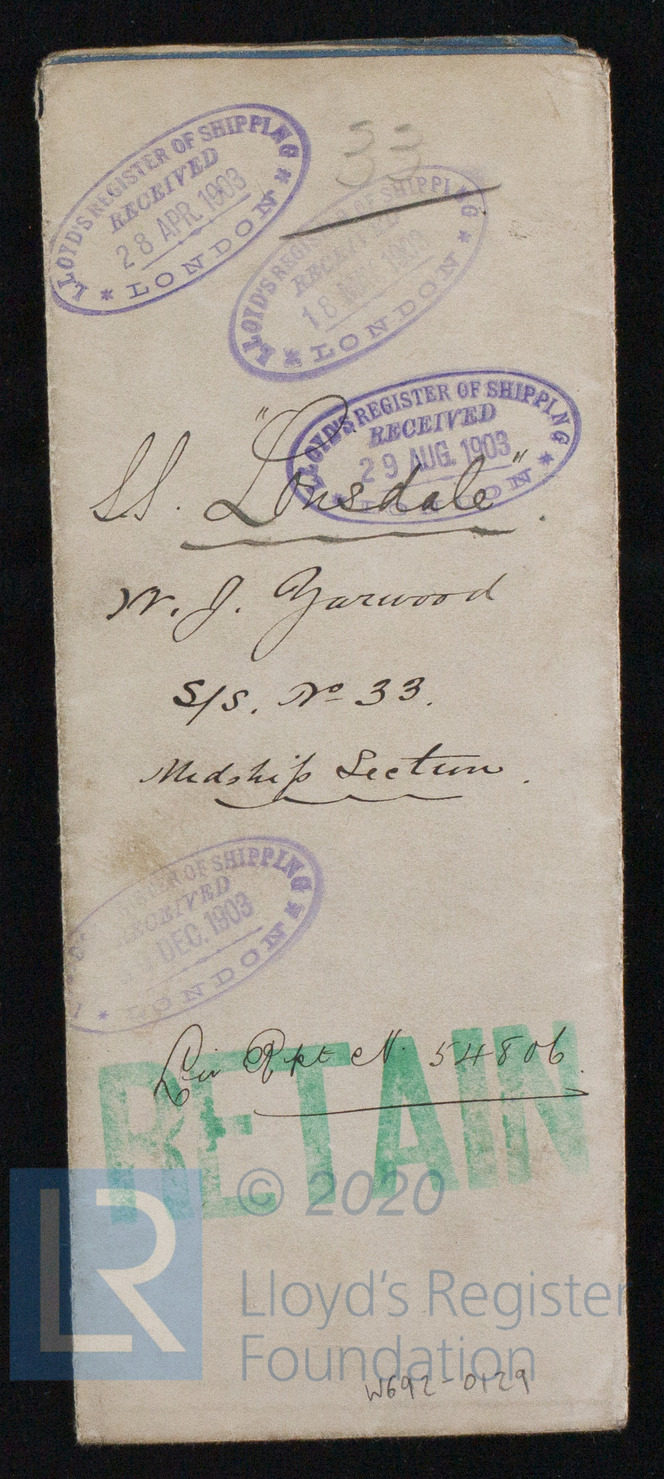 LLOYD'S REGISTER OF SHIPPING
RECEIVED
28 APR. 1903
LONDON
33
LLOYD'S REGISTER OF SHIPPING
RECEIVED
18 1903
LONDON
LLOYD'S REGISTER OF SHIPPING
RECEIVED
29 AUG. 1903
LONDON
SS. "Lonsdale".
W. J. Yarwood
S/S. No 33.
Midship Section.
OF SHIPPING
RECEIVED
DEC. 1903
LONDON
Liv Rpt N. 54806.
RETAIN
© 2020
LR
Lloyd's Register
Foundation
W692-0129